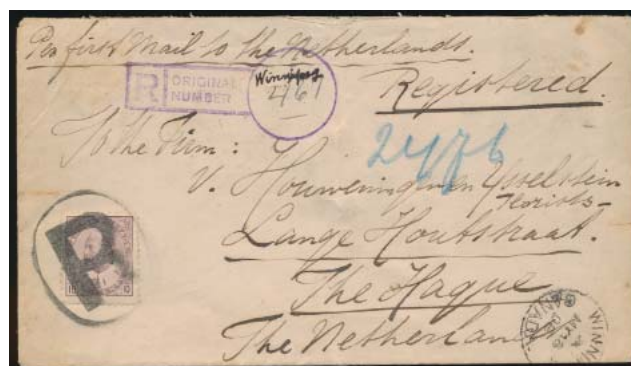 Per first Mail to the Netherlands.
R ORIGINAL NUMBER Winnipeg 2461
Registered.
To the Firm:
V. Houweningen Ysselstein
Florists-
Lange Houtstraat.
The Hague
The Netherlands
R
WINNI MY 18 CANADA